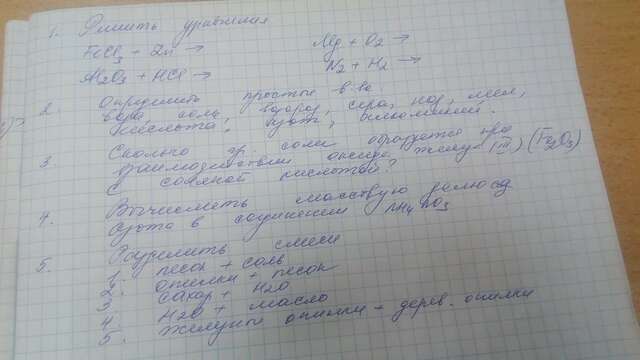 1. Решить уравнения
FeCl3 + Zn → Mg + O2 →
Al2O3 + HCl → N2 + H2 →
2. Определить простые в-ва
вода, соль, водород, сера, мел,
кислота, азот, алюминий.
3. Сколько гр. соли образуется при
взаимодействии оксида железа (III) (Fe2O3)
с соляной кислотой?
4. Вычислить массовую долю
азота в соединении NH4NO3
5. Разделить смеси
1. песок + соль
2. опилки + песок
3. сахар + H2O
4. H2O + масло
5. железные опилки + дерев. опилки